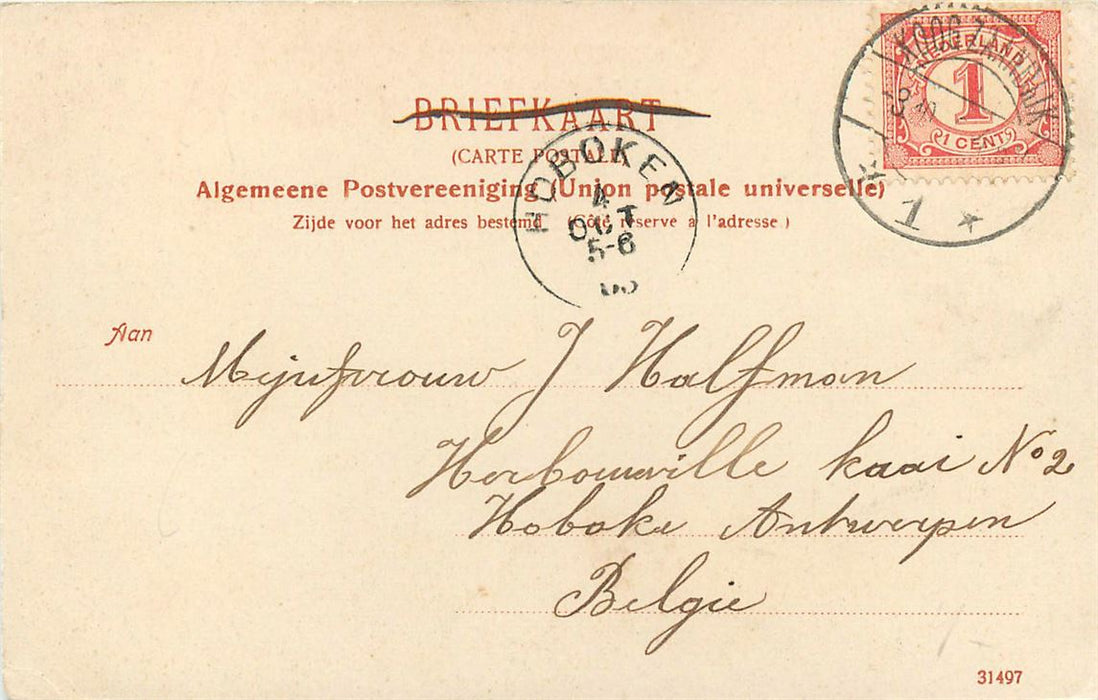 NEDERLAND
1
1 CENT
KOOG-ZAANDIJK
1
BRIEFKAART
(CARTE POSTALE)
Algemeene Postvereeniging (Union postale universelle)
Zijde voor het adres bestemd (Côté réservé a l'adresse)
HOBOKEN
4
OCT
5-6
Aan
Mejufvrouw J Halfman
Herbouwville kaai No 2
Hoboke Antwerpen
Belgie
31497